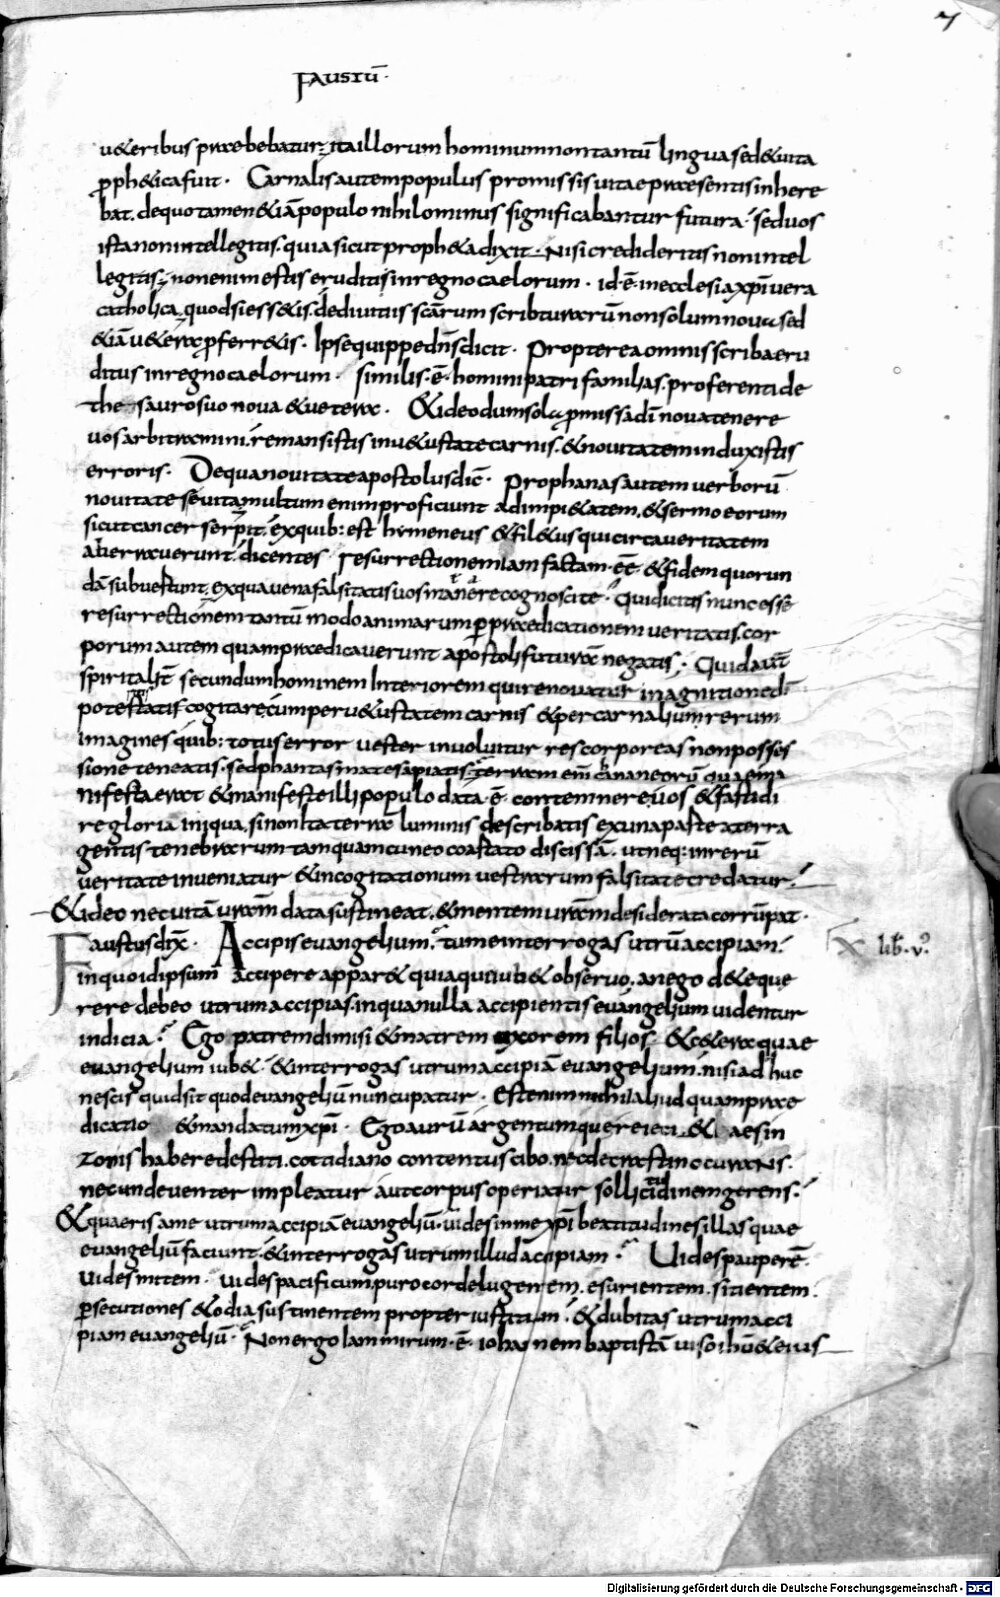 7
FAUSTŪ·
u&eribus praebebatur; ita illorum hominum non tantū lingua sed & uita
pph&ica fuit· Carnalis autem populus promissis uitae praesentis inhere
bat. de quo tamen & iā populo nihilominus significabantur futura; sed uos
ista non intellegitis. quia sicut proph&a dixit· Nisi credideritis non intel
legitis; non enim estis eruditi in regno caelorum· id·ē· in ecclesia xpī uera
catholica, quod si ess&is. de diuitiis scārum scribturarū non solum noua sed
&iā u&era pferr&is· Ipse quippe dn̄s dicit· Propterea omnis scriba eru
ditus in regno caelorum· similis·ē· homini patri familias. proferenti de
thesauro suo noua & uetera· & ideo dum sola pmissa dī noua tenere
uos arbitramini. remansistis in u&ustate carnis. & nouitatem induxistis
erroris· De qua nouitate apostolus dic̄· Prophanas autem uerborū
nouitates euita multum enim proficiunt ad impi&atem. & sermo eorum
sicut cancer serpit. ex quib: est hymeneus & fil&us qui circa ueritatem
aberrauerunt. dicentes resurrectionem iam factam·ēē· & fidem quorun
dā subuertunt. ex qua uena falsitatis uos manere recognoscite· Qui dicitis nunc esse
resurrectionem tantū modo animarum p praedicationem ueritatis. cor
porum autem quam praedicauerunt apostoli futurā negatis· Quid aut̄
spiritalit̄ secundum hominem Interiorem qui renouatur in agnitione dī
potestatis cogitare cum per u&ustatem carnis & per carnalium rerum
imagines quib: totus error uester inuoluitur res corporeas non posses
sione teneatis· sed phantasmate sapiatis; terram enī cananeorū quae ma
nifesta erat & manifeste illi populo data·ē· contemnere uos & fastidi
re gloria iniqua. si non ita terrā luminis describatis ex una parte a terra
gentis tenebrarum tamquam cuneo coartato discissā. ut neq: in rerū
ueritate inueniatur & in cogitationum uestrarum falsitate credatur;
& ideo nec uitā urām data sustineat. & mentem urām desiderata corrūpat·
Faustus dix̄· Accipis euangelium. tu me interrogas utrū accipiam;
in quo id ipsum accipere appar& quia quae iub& observo. an ego de te que
rere debeo utrum accipias. in qua nulla accipientis euangelium uidentur
indicia; Ego patrem dimisi & matrem uxorem filios· & c&era quae
euangelium iub&· & interrogas utrum accipiā euangelium. nisi adhuc
nescis quid sit quod euangeliū nuncupatur· Est enim nihil aliud quam prae
dicatio & mandatum xpī· Ego aurū argentumque reieci. & aes in
zonis habere destiti. cotidiano contentus cibo. nec de crastino curans.
nec unde uenter impleatur aut corpus operiatur sollicitudinem gerens;
& quaeris a me utrum accipiā euangeliū· uides in me xpī beatitudines illas quae
euangeliū faciunt. & interrogas utrum illud accipiam· Uides pauperē·
uides mitem· uides pacificum. puro corde lugentem. esurientem. sitientem.
psecutiones & odia sustinentem propter iustitiam. & dubitas utrum acci
piam euangeliū· Non ergo iam mirum·ē· iohannem baptistā uiso ihū & eius
lib̄. v°